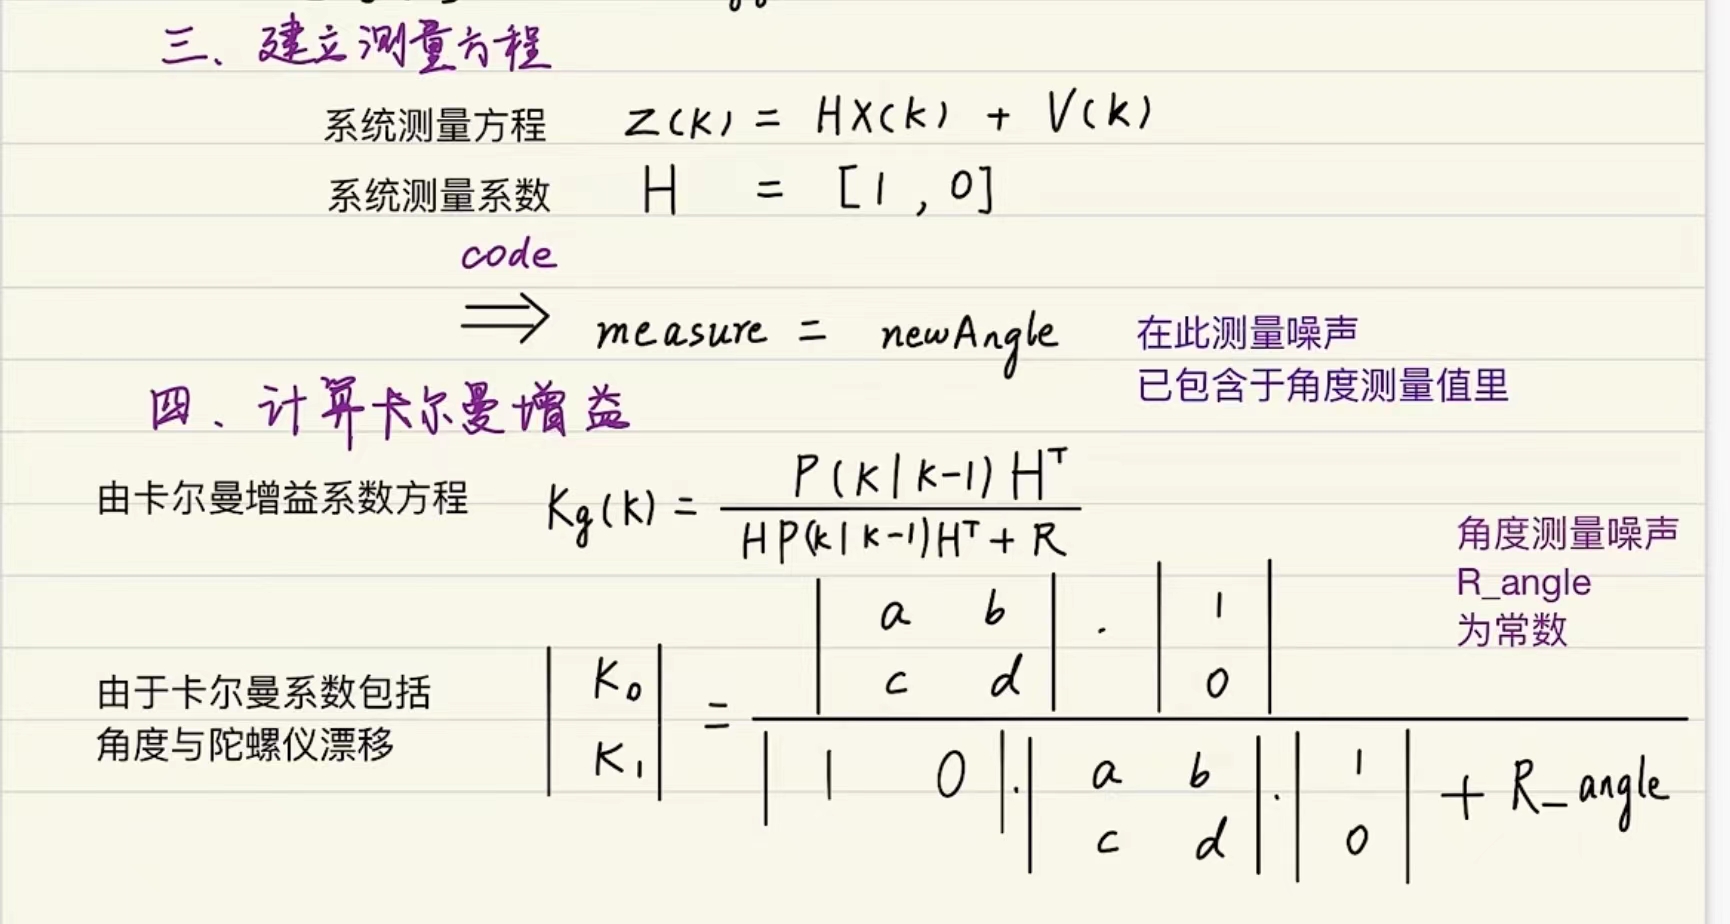 三、建立测量方程
系统测量方程 Z(k) = HX(k) + V(k)
系统测量系数 H = [1 , 0]
code
⇒ measure = newAngle 在此测量噪声
已包含于角度测量值里
四、计算卡尔曼增益
由卡尔曼增益系数方程 Kg(k) = P(k|k-1)Hᵀ / HP(k|k-1)Hᵀ + R
角度测量噪声
R_angle
为常数
由于卡尔曼系数包括
角度与陀螺仪漂移
| K₀ | = | a b | . | 1 |
| K₁ | | c d | | 0 |
| 1 0 | . | a b | . | 1 | + R_angle
| c d | | 0 |